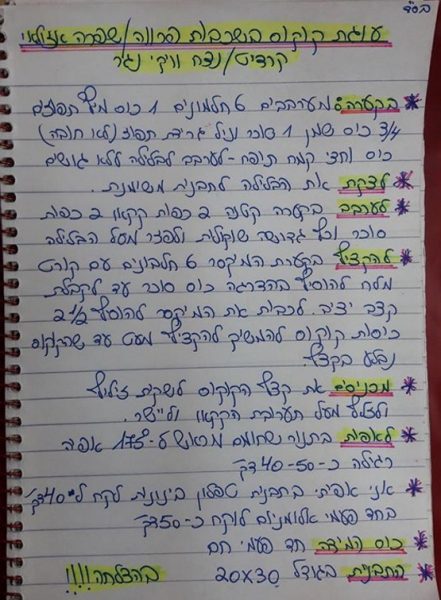 בס"ד
עוגת קוקוס בשכבות פרווה/שפרה אזולאי
קרדיט/נצח וויקי נגר
* בקערה: מערבבים 6 חלמונים 1 כוס מיץ תפוזים
3/4 כוס שמן 1 סוכר וניל גרידת תפוז (לא חובה)
כוס וחצי קמח תופח - לערבב לבלילה ללא גושים
* לצקת את הבלילה לתבנית משומנת.
* לערבב בקערה קטנה 2 כפות קקאו 2 כפות
סוכר וכף גדושה שוקולית ולפזר מעל הבלילה
* להקציף בקערת המיקסר 6 חלבונים עם קורט
מלח להוסיף בהדרגה כוס סוכר עד לקבלת
קצף יציב. לכבות את המיקסר להוסיף 2 1/2
כוסות קוקוס להמשיך להקציף מעט עד שהקוקוס
נבלע בקצף.
* מכניסים את קצף הקוקוס לשקית זילוף
ולזלף מעל תערובת הקקאו וליישר.
* לאפות בתנור שחומם מראש ל-175° אפיה
רגילה כ-40-50 דק'
* אני אפיתי בתבנית טפלון בינונית לקח ל 40 דק'
בחד פעמי אלומניום לוקח כ-50 דק'
* כוס המידה חד פעמי חם
* התבנית בגודל 20x30 בהצלחה!!!!